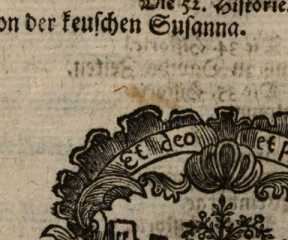 Die 52. Historie.
on der keuschen Susanna.
Et deo et